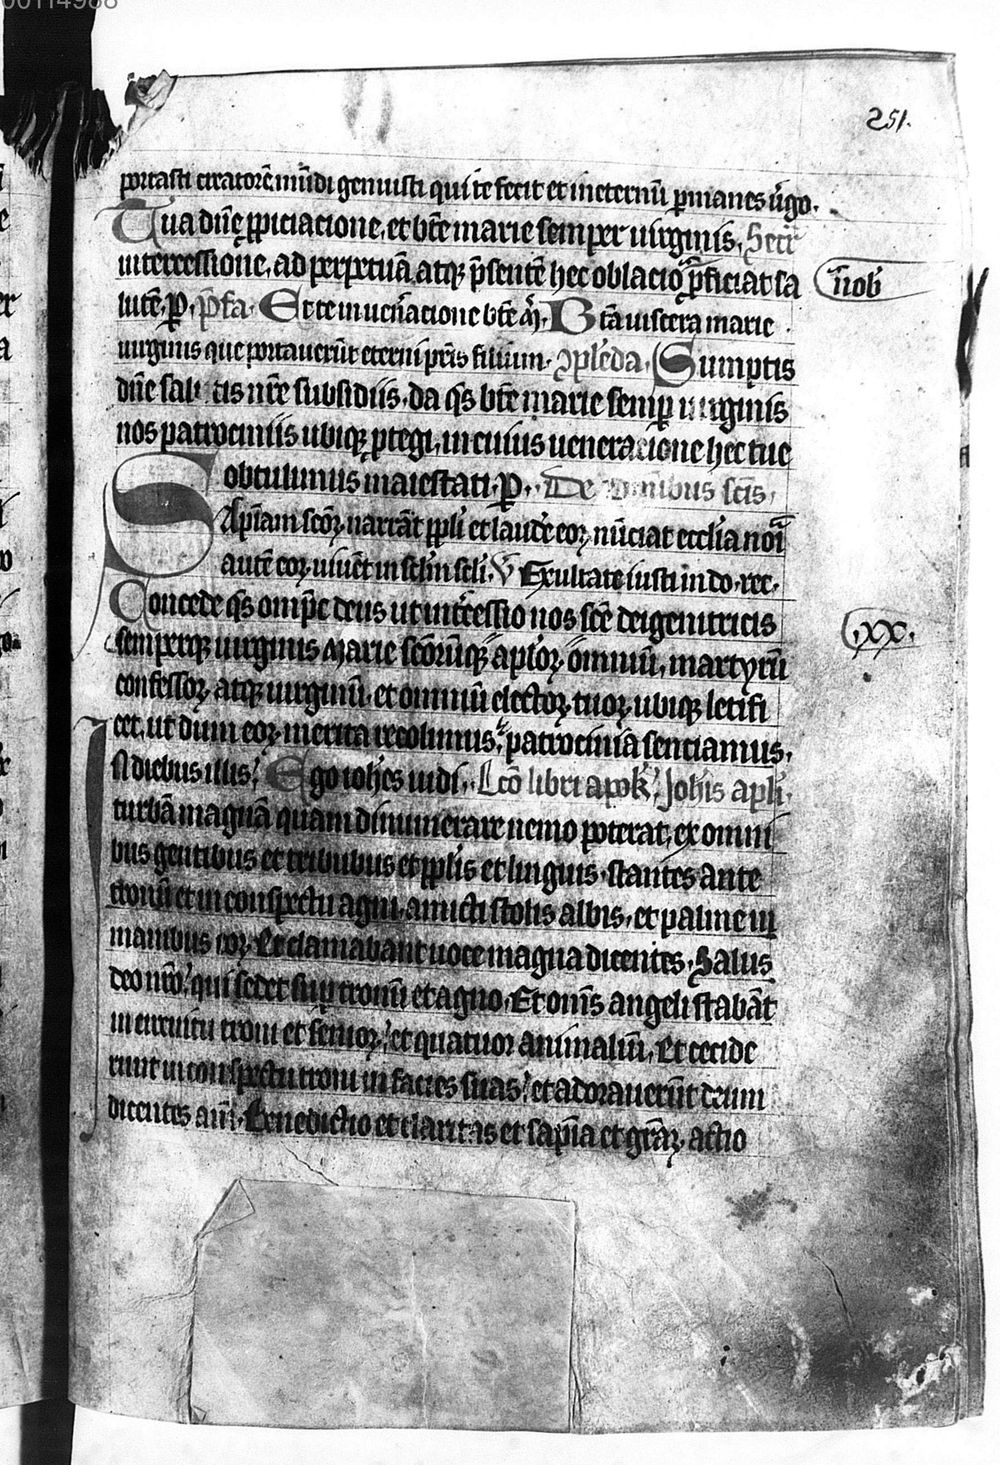 00114988
251.
portasti creatorē mūdi genuisti qui te fecit et in eternū ꝑmanes ũgo.
Tua dn̄e ꝓpiciacione, et bt̄e marie semper uirginis, Secr̄
intercessione, ad perpetuā atqꝫ p̄sentē hec oblacio ꝓficiat sa
n̄ob
lutē. P. p̄fa. Et te in ueñacione bt̄e M̄. Btā uiscera marie
uirginis que portauerūt eterni pr̄is filium. ꝯpleda. Sumptis
dn̄e salutis nr̄e subsidiis. da qs̄ bt̄e marie semꝑ uirginis
nos patrociniis ubiqꝫ ꝓtegi, in cuius ueneracione hec tue
obtulimus maiestati. P. De omnibus sc̄is,
Sapīam sc̄oꝝ narrāt ppl̄i et laudē eoꝝ nūciat eccl̄ia noīa
autē eoꝝ uiuēt in sclm̄ scl̄i. V Exultate iusti in do. rec.
Concede qs̄ omp̄c deus ut int̄cessio nos sc̄e dei genitricis
.xx.
semperqꝫ uirginis Marie sc̄orūqꝫ apl̄oꝝ omniū, martyrū
confessoꝝ, atqꝫ uirginū, et omniū electoꝝ tuoꝝ ubiqꝫ letifi
cet, ut dum eoꝝ merita recolimus, patrocinia senciamus,
In diebus illis. Ego ioh̄es uidi, Lc̄o libri apok. Joh̄is apl̄i.
turbā magnā quam dinumerare nemo poterat, ex omni
bus gentibus et tribubus et ppl̄is et linguis, stantes ante
tronū et in conspectu agni, amicti stolis albis, et palme in
manibus eoꝝ. Et clamabant uoce magna dicentes, Salus
deo nr̄o, qui sedet suꝑ tronū et agno, Et om̄s angeli stabāt
in circuitu troni et senioꝝ, et quatuor animaliū, Et cecide
runt in conspectu troni in facies suas, et adorauerūt deum
dicentes am̄. Benedictio et claritas et sapīa et grāꝝ actio